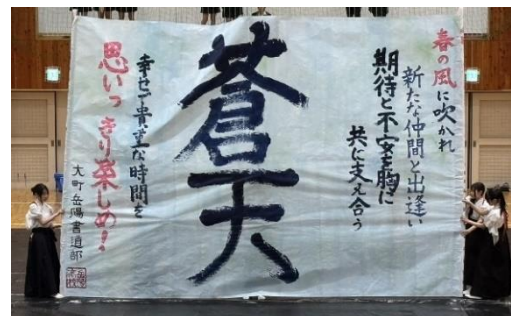 春の風に吹かれ
新たな仲間と出逢い
期待と不安を胸に
共に支え合う
蒼天
幸せで貴重な時間を
思いっきり楽しめ!
大町岳陽書道部